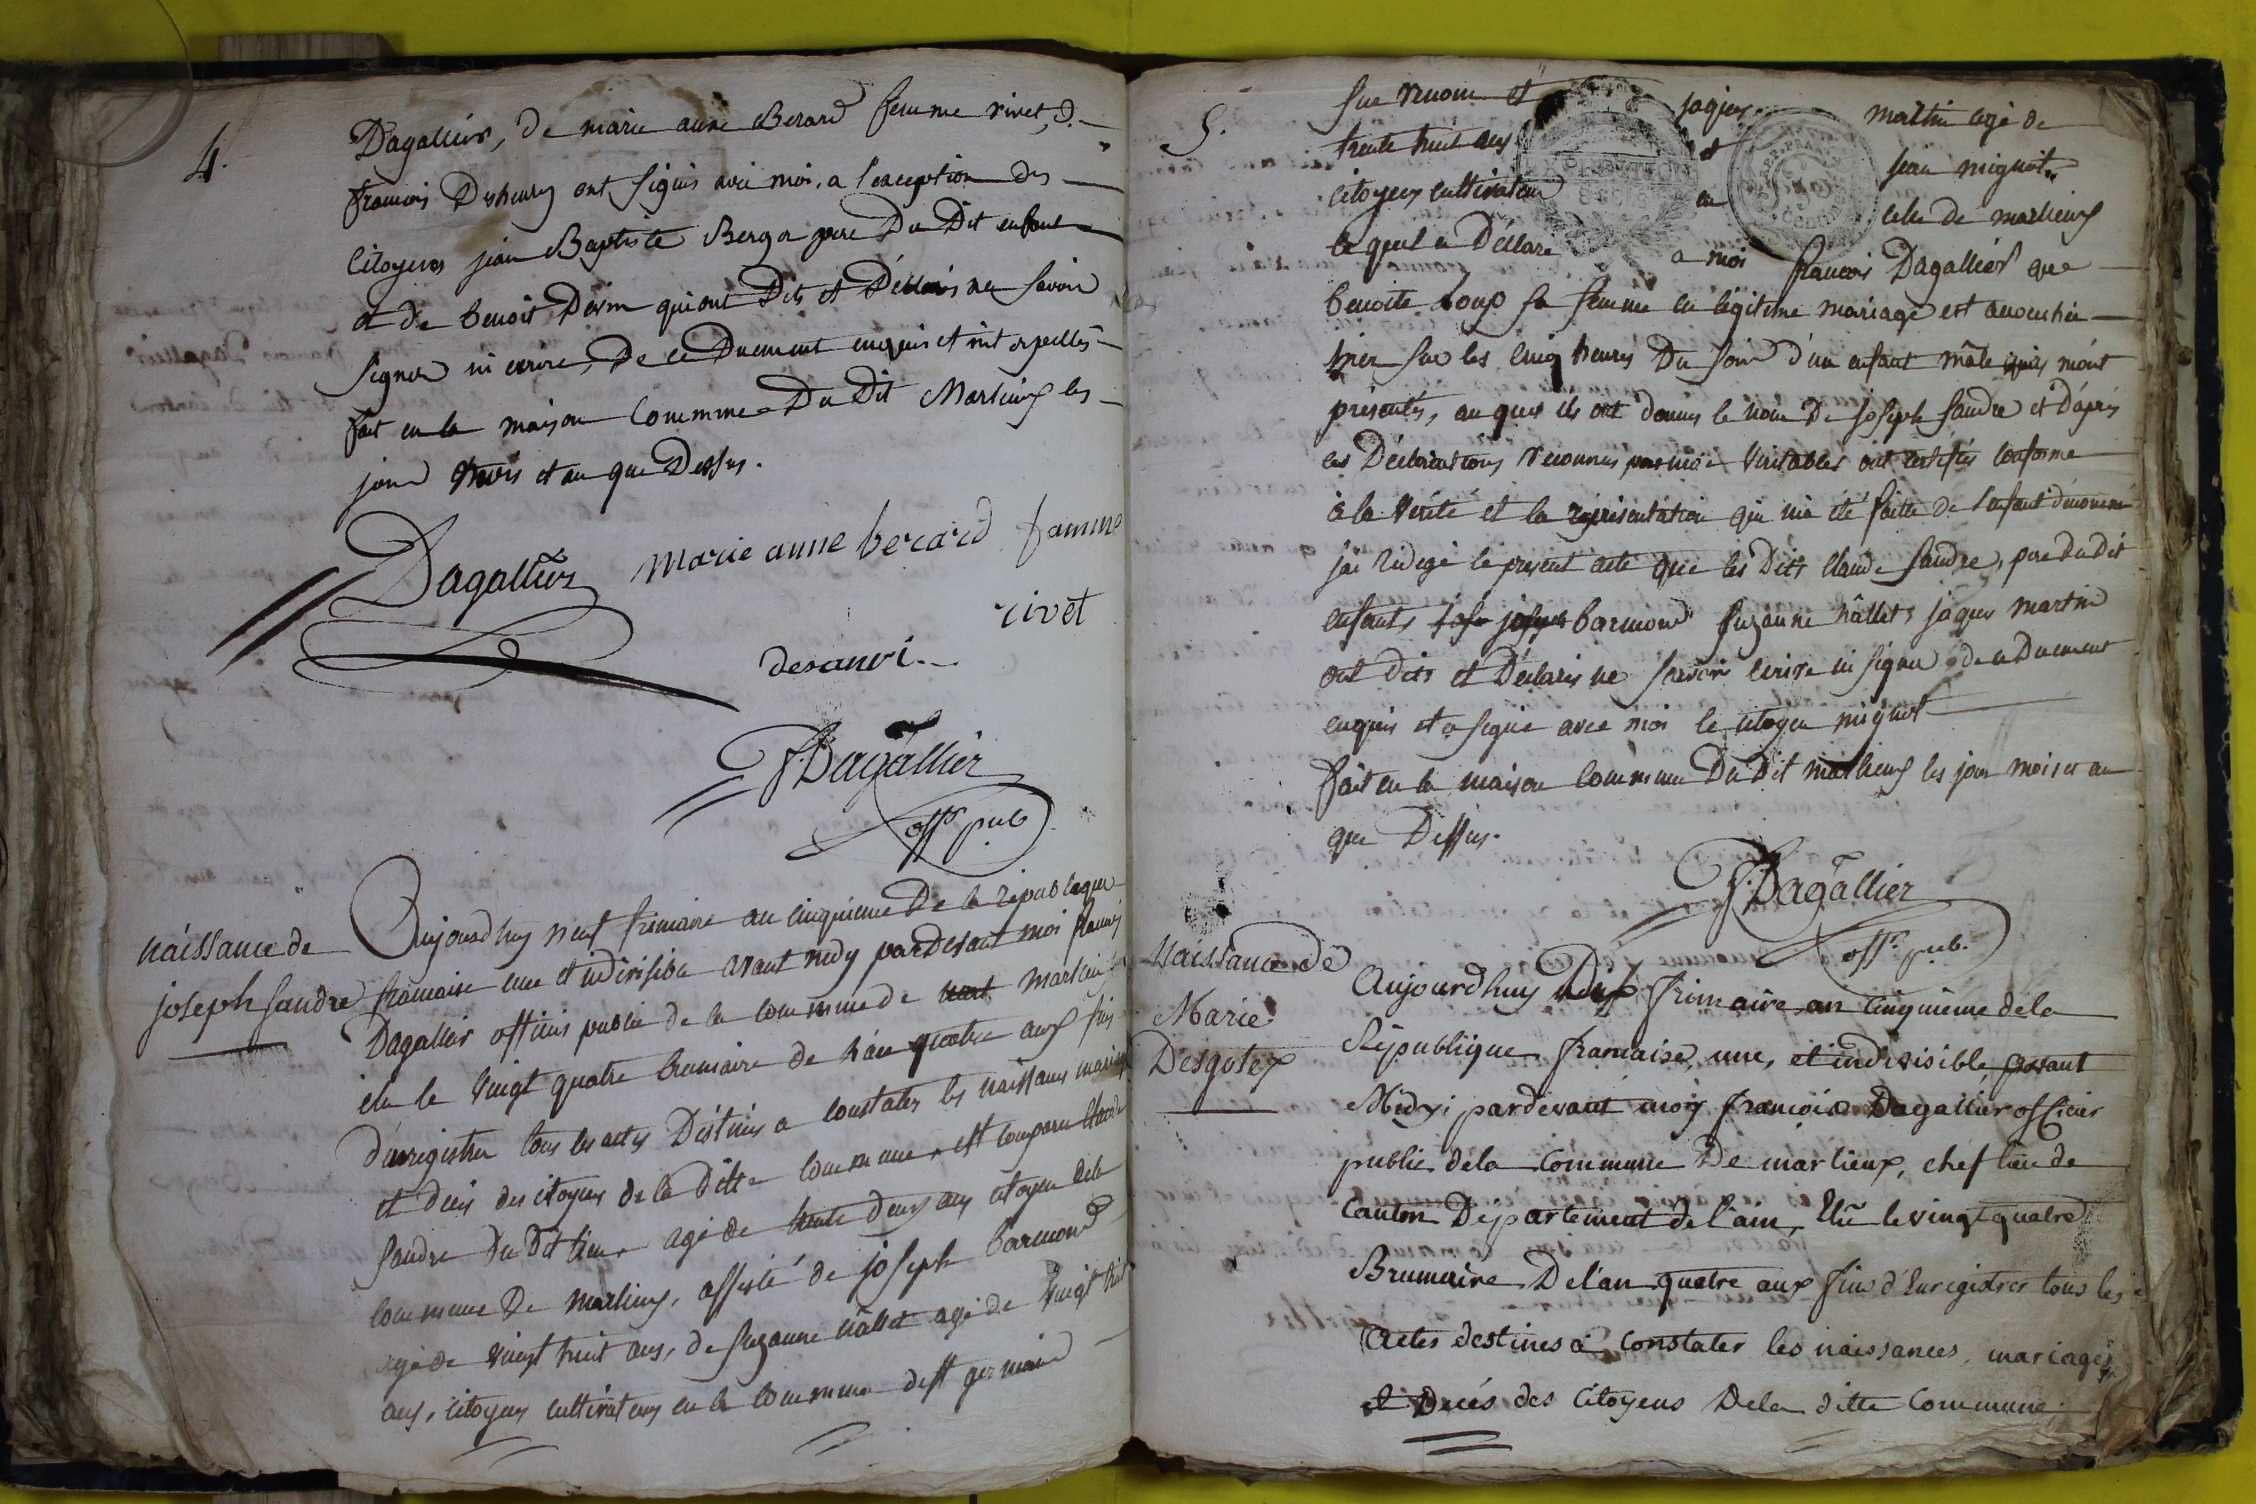 4.
Dagallier, de marie anne Berard femme rivet, &
francois Deshenry ont signés avec moi, a l'exception des
citoyens jean Baptiste Berga pere Du Dit enfant
et de benoit qui ont Dits et Déclarés ne savoir
signer ni ecrire, De ce Duement enquis et interpellés
fait en la maison Commune Du Dit Marlieux les
jour mois et an que Dessus.
Dagallier
marie anne berard famme
rivet
desanvi
F. Dagallier
offr. pub.
naissance de
joseph sandre
Aujourdhuy neuf frimaire an cinquieme De la republique
francaise une et indivisible avant midy pardevant moi francois
Dagallier officier public de la commune de Marlieux
élu le vingt quatre brumaire de l'an quatre aux fins
d'enregistrer tous les actes Déstinés a constater les naissances mariages
et décés des citoyens de la ditte commune, est comparu Claude
sandre Du Dit lieu, agé de trente deux ans citoyen de la
commune De marlieux, assisté de joseph barmond
agé de vingt huit ans, de suzanne nallet agé de vingt huit
ans, citoyens cultivateurs en la commune de st germain
5.
sur renom et jaques martin agé de
trente huit ans et jean mignot
citoyens cultivateur en celle de marlieux
le quel a Déclaré a moi francois Dagallier que
benoite Loup sa femme en légitime mariage est accouchée
hier sur les cinq heures Du soir d'un enfant mâle qu'ils m'ont
présentés, au quel ils ont donnés le nom De joseph sandre et d'aprés
les Déclarations reconnus par moi véritables ont certifiés conforme
à la verité et la représentation qui m'a été faitte de l'enfant dénommé
j'ai rédigé le present acte que les Dits Claude sandre, pere du dit
enfant, barmond suzanne nâllet, jaques martin
ont dits et Déclarés ne sçavoir écrire ni signer de ce Duement
enquis et a signé avec moi le citoyen mignot
fait en la maison commune Du Dit marlieux les jour mois et an
que Dessus.
F. Dagallier
offr. pub.
Naissance de
Marie
Desgotex
Aujourdhuy Dix frimaire an cinquieme de la
République francaise, une, et indivisible, avant
Midyi pardevant moy francois Dagallier officier
public de la Commune De marlieux, chef lieu de
Canton Département de l'ain, Elû le vingt quatre
Brumaire De l'an quatre aux fins d'Enregistrer tous les
actes destinés à Constater les naissances, mariages
et Décés des Citoyens De la ditte Commune;